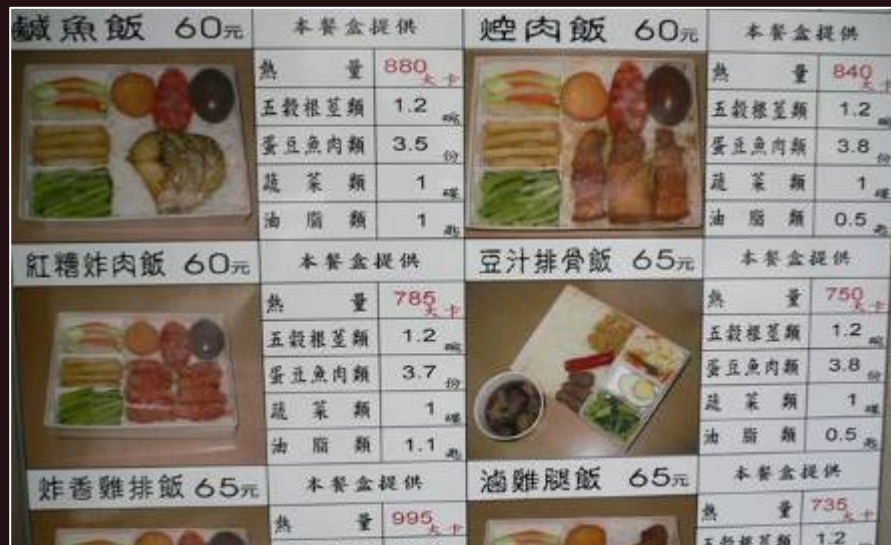 鹹魚飯 60元
本餐盒提供
熱量 880大卡
五穀根莖類 1.2碗
蛋豆魚肉類 3.5份
蔬菜類 1碟
油脂類 1匙
焢肉飯 60元
本餐盒提供
熱量 840大卡
五穀根莖類 1.2碗
蛋豆魚肉類 3.8份
蔬菜類 1碟
油脂類 0.5匙
紅糟炸肉飯 60元
本餐盒提供
熱量 785大卡
五穀根莖類 1.2碗
蛋豆魚肉類 3.7份
蔬菜類 1碟
油脂類 1.1匙
豆汁排骨飯 65元
本餐盒提供
熱量 750大卡
五穀根莖類 1.2碗
蛋豆魚肉類 3.8份
蔬菜類 1碟
油脂類 0.5匙
炸香雞排飯 65元
本餐盒提供
熱量 995大卡
滷雞腿飯 65元
本餐盒提供
熱量 735大卡
五穀根莖類 1.2